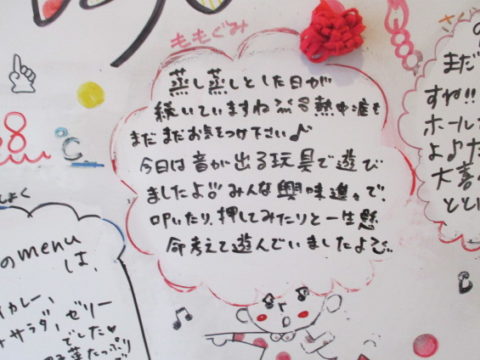 ももぐみ
蒸し蒸しとした日が
続いていますね💦熱中症も
まだまだお気をつけ下さい♪
今日は音が出る玩具で遊び
ましたよ!!みんな興味進々で、
叩いたり、押してみたりと一生懸
命考えて遊んでいましたよ
8℃
のmenu
は、
カレー、
サラダ、ゼリー
でした♡
たっぷり
まだ
すね!!
ホール
大喜